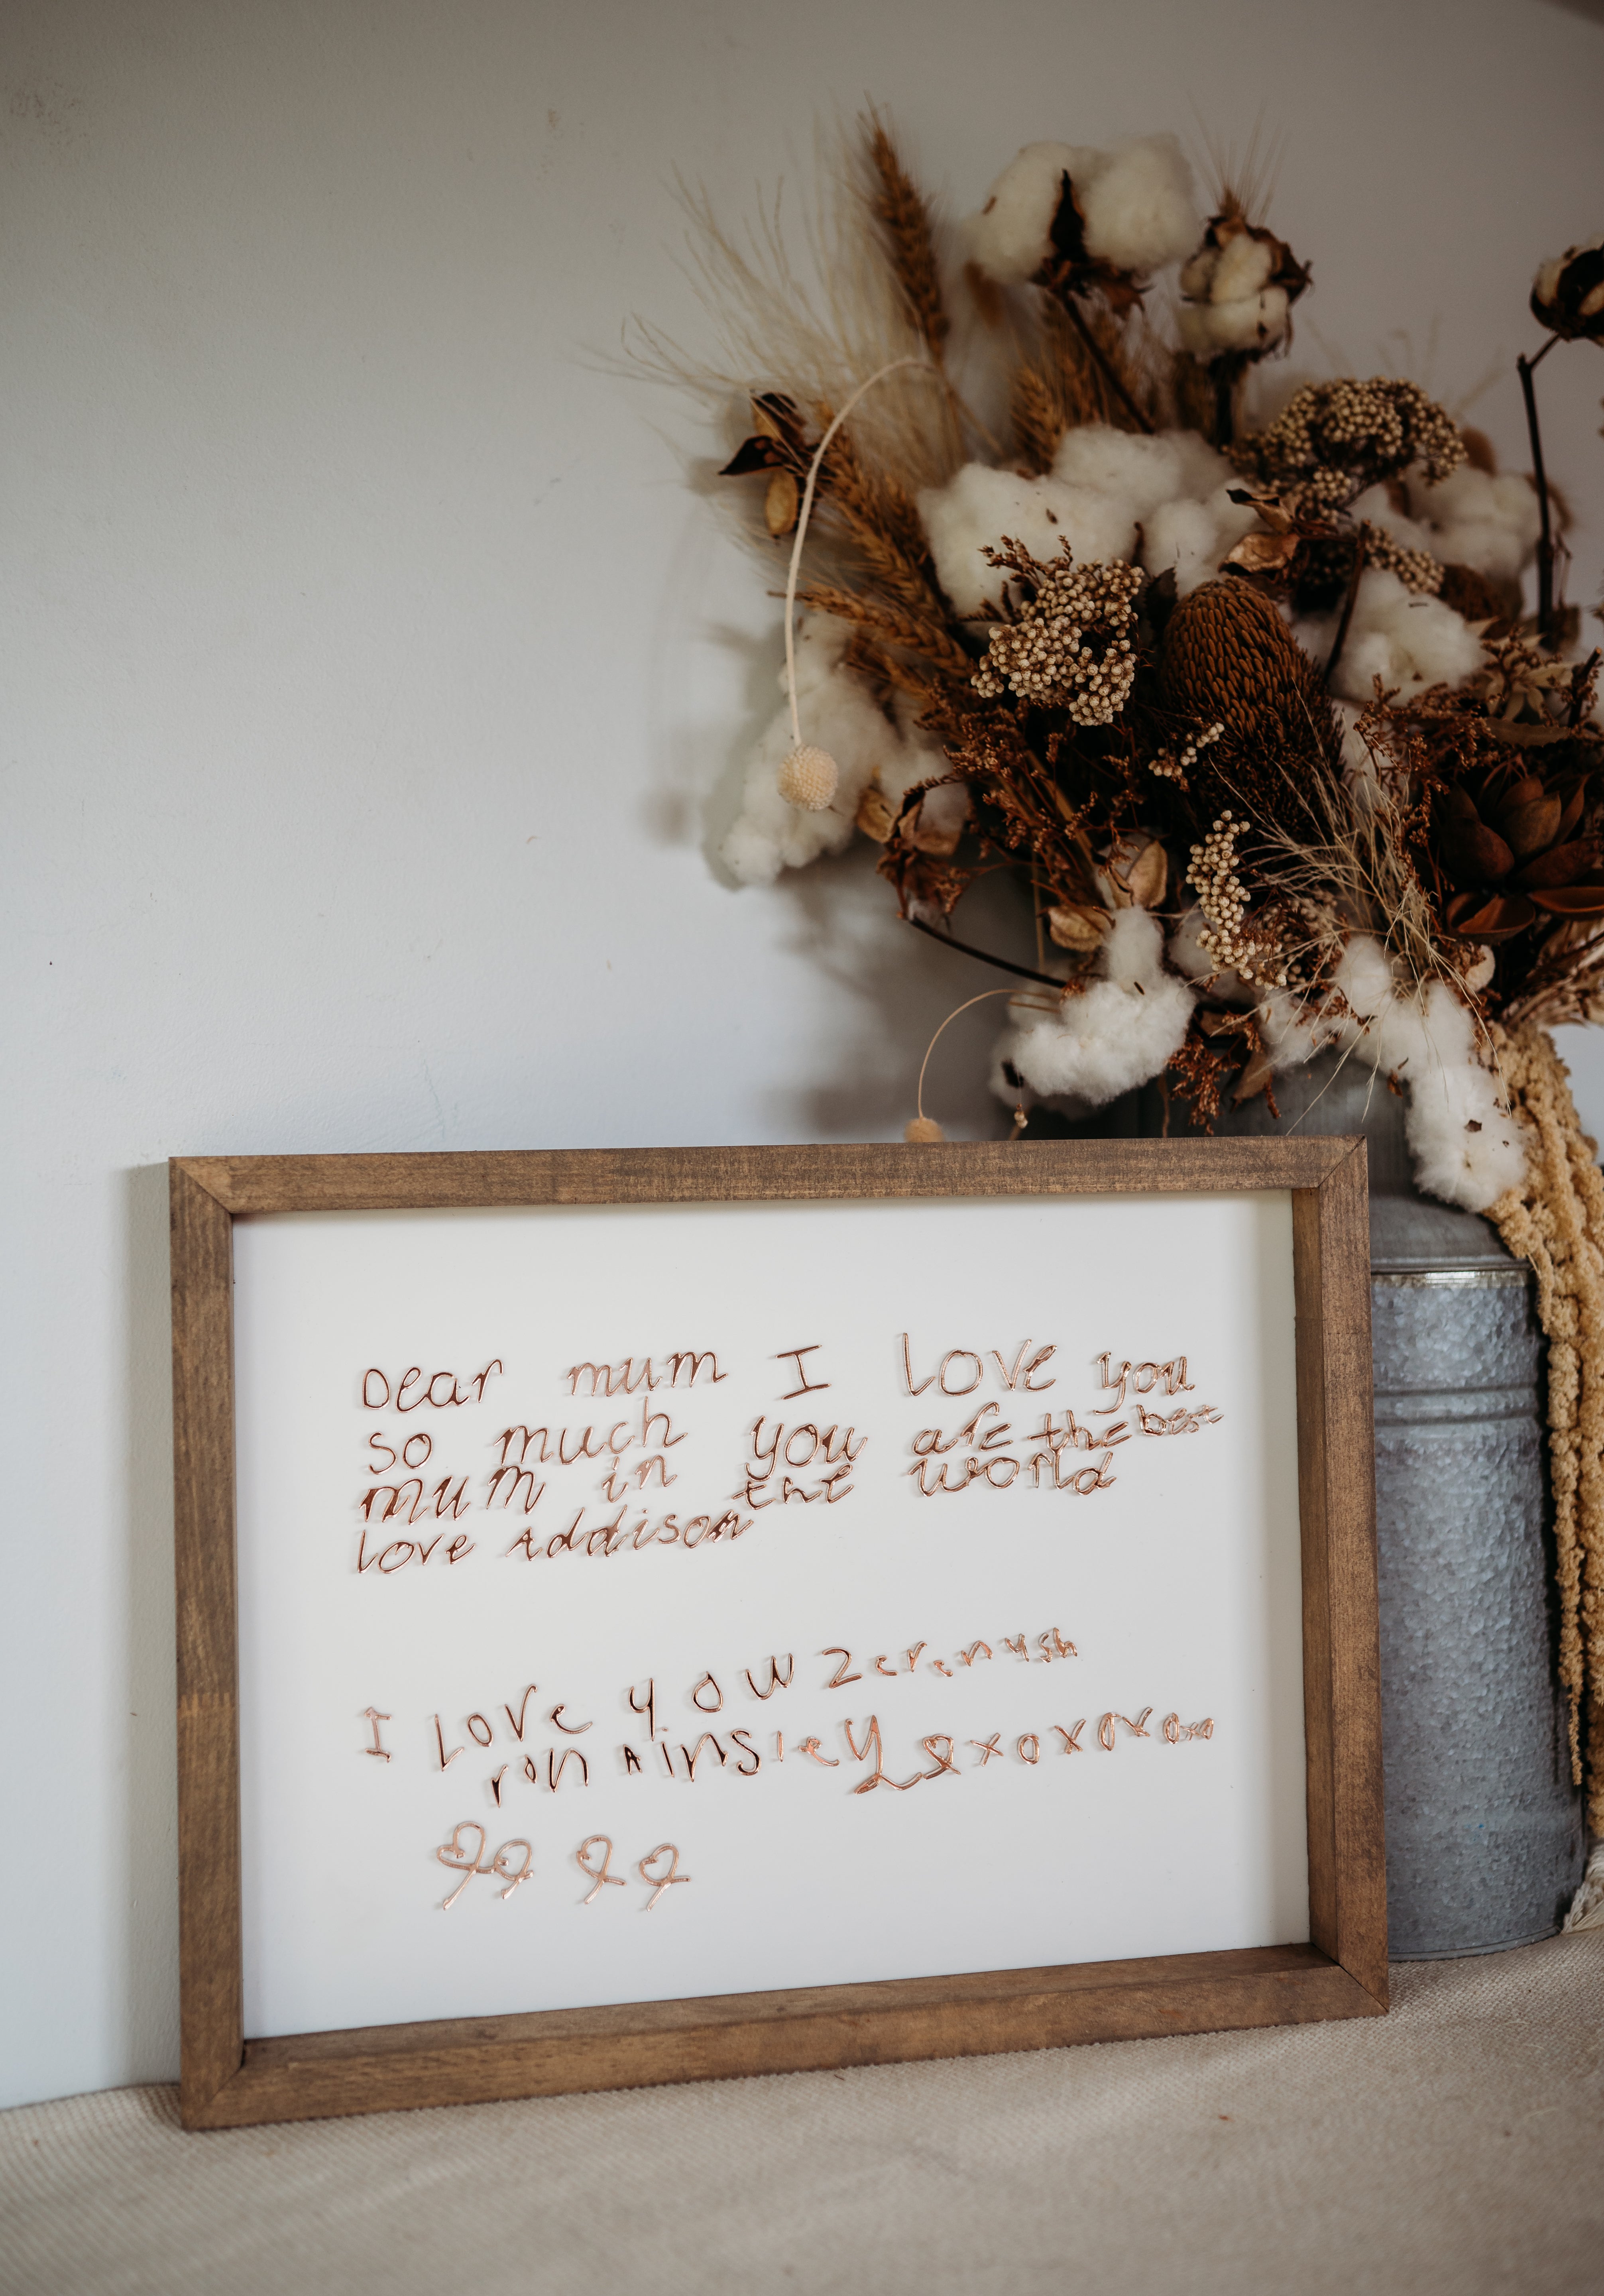 Dear mum I Love you
so much you are the best
mum in the world
love Addison
I Love yow
ron Ainsley xoxoxoxo